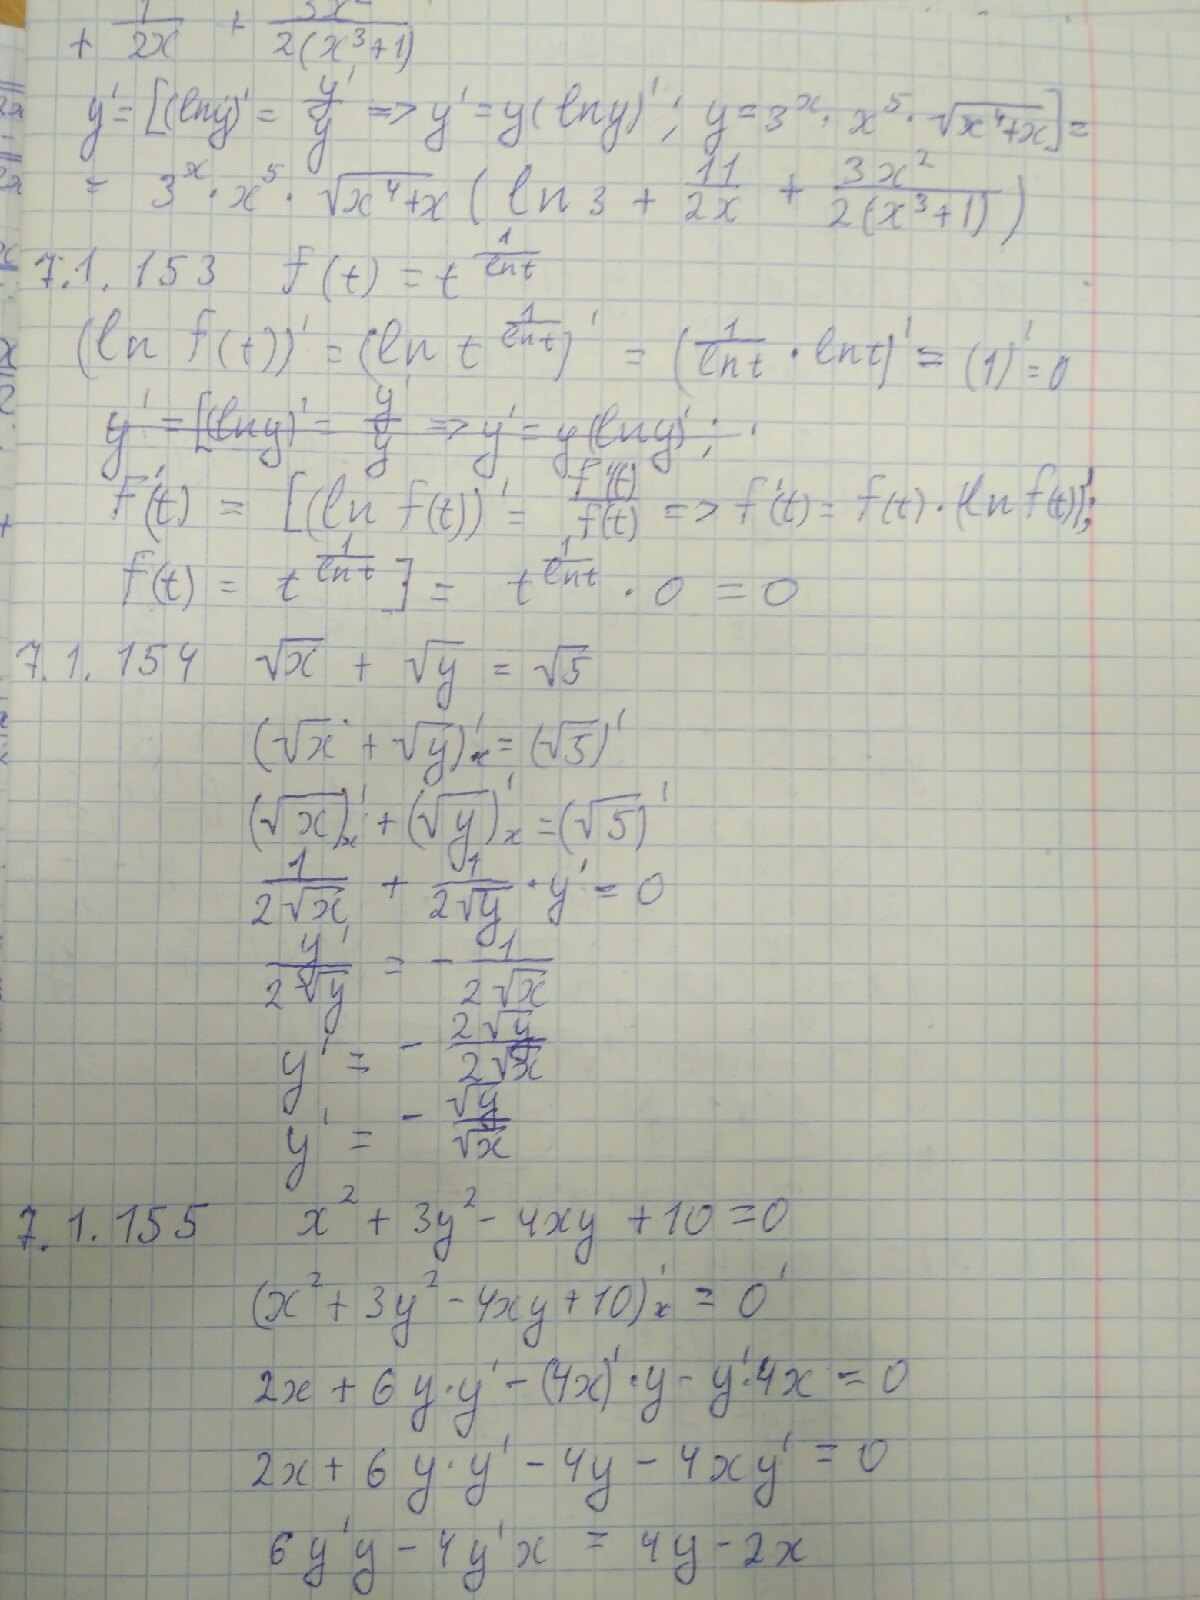 + 1/2x + 3x²/2(x³+1)
y' = [(lny)' = y'/y => y' = y(lny)'; y = 3^x · x⁵ · √(x⁴+x)] =
= 3^x · x⁵ · √(x⁴+x) (ln3 + 11/2x + 3x²/2(x³+1))
7.1.153 f(t) = t^(1/lnt)
(ln f(t))' = (ln t^(1/lnt))' = (1/lnt · lnt)' = (1)' = 0
y' = [(lny)' = y'/y => y' = y(lny)';
f'(t) = [(ln f(t))' = f'(t)/f(t) => f'(t) = f(t) · (ln f(t))';
f(t) = t^(1/lnt)] = t^(1/lnt) · 0 = 0
7.1.154 √x + √y = √5
(√x + √y)'ₓ = (√5)'
(√x)'ₓ + (√y)'ₓ = (√5)'
1/2√x + 1/2√y · y' = 0
y'/2√y = - 1/2√x
y' = - 2√y/2√x
y' = - √y/√x
7.1.155 x² + 3y² - 4xy + 10 = 0
(x² + 3y² - 4xy + 10)'ₓ = 0'
2x + 6y·y' - (4x)'·y - y'·4x = 0
2x + 6y·y' - 4y - 4xy' = 0
6y'y - 4y'x = 4y - 2x